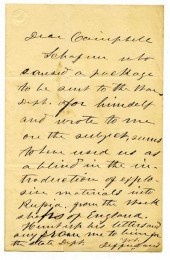 Dear Campbell
who
caused a package
to be sent to the War
Dept. for himself
and wrote to me
on the subject, seems
to have used us as
a blind in the in-
troduction of explo-
sive materials into
Russia, from the work
shops of England.
his letters and
to him
the State Dept.